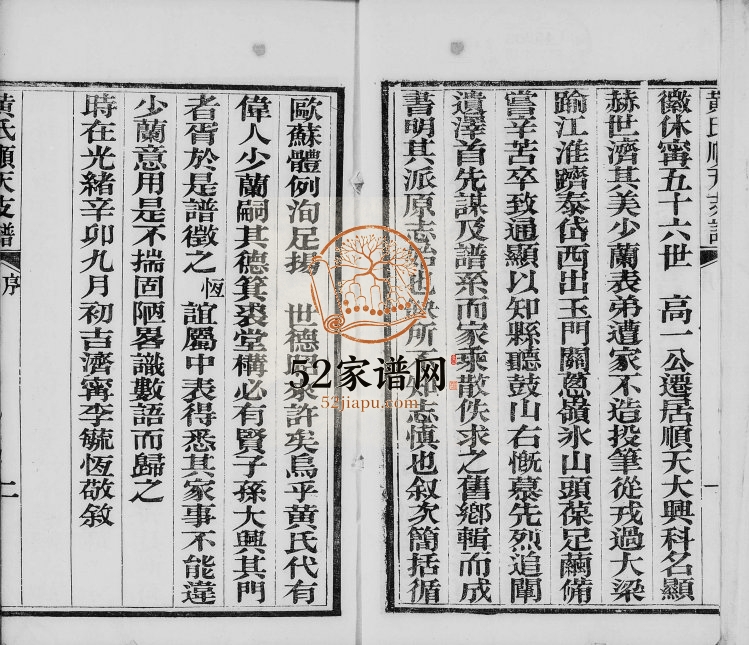 黃氏順天支譜
一
徽休甯五十六世　高一公遷居順天大興科名顯
赫世濟其美少蘭表弟遭家不造投筆從戎過大梁
踰江淮躋泰岱西出玉門關蔥嶺氷山頭葆足繭備
嘗辛苦卒致通顯以知縣聽鼓山右慨慕先烈追闡
遺澤首先謀及譜系而家乘散佚求之舊鄉輯而成
書明其派原志始也缺所不知志慎也叙次簡括循
歐蘇體例洵足揚　世德
許矣烏乎黃氏代有
偉人少蘭嗣其德箕裘堂構必有賢子孫大興其門
者胥於是譜徵之　恆　誼屬中表得悉其家事不能違
少蘭意用是不揣固陋畧識數語而歸之
時在光緒辛卯九月初吉濟甯李毓恆敬敘
黃氏順天支譜
序
二
52家谱网
52jiapu.com